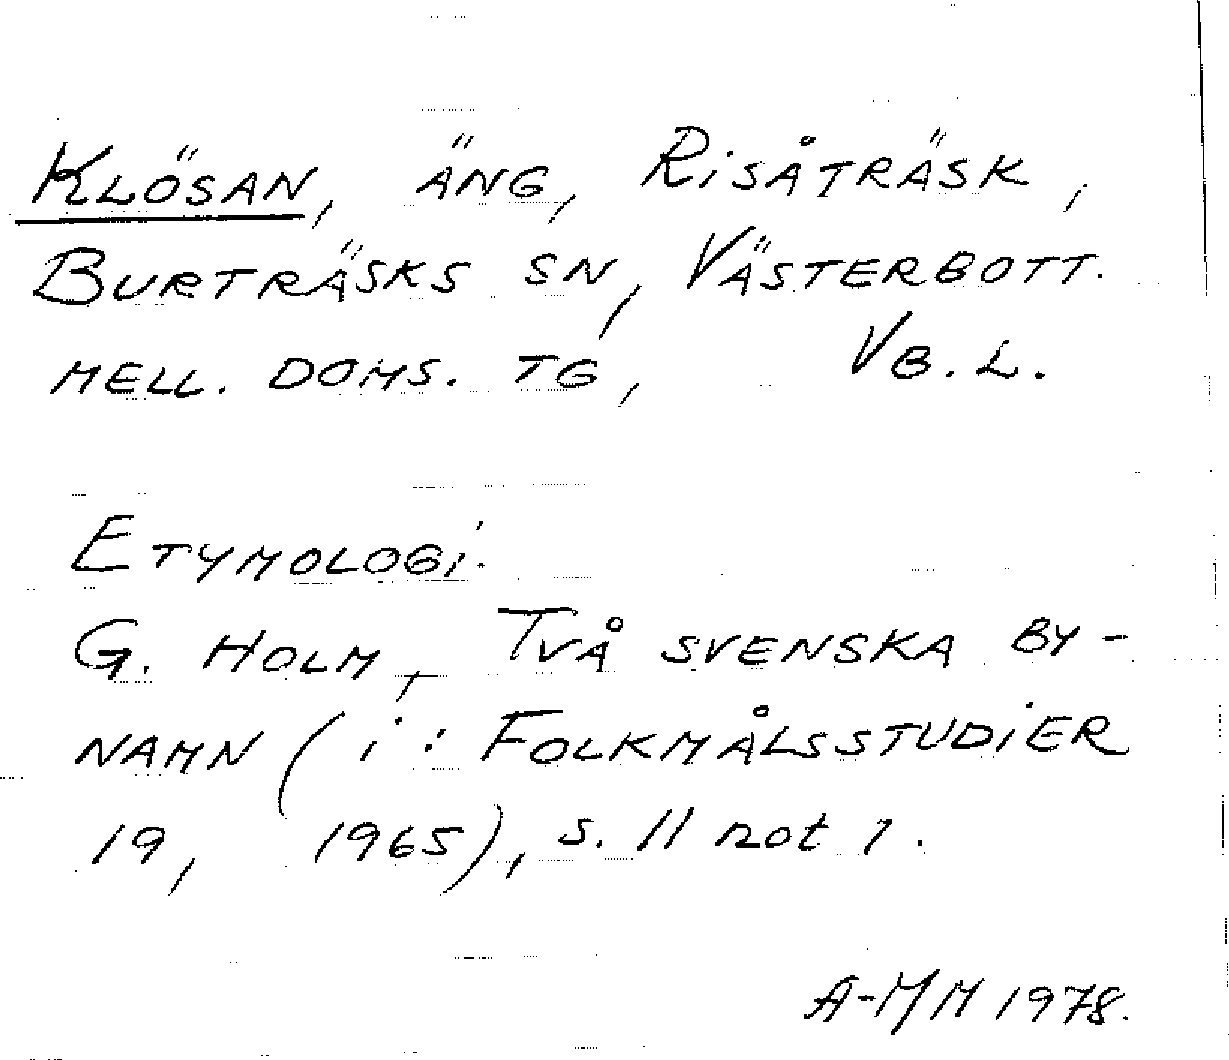 KLÖSAN, ÄNG, RISÅTRÄSK,
BURTRÄSKS SN, VÄSTERBOTT.
MELL. DOMS. TG, VB. L.
ETYMOLOGI.
G. HOLM, TVÅ SVENSKA BY-
NAMN (i: FOLKMÅLSSTUDIER
19, 1965), s. 11 not 1.
A-MM 1978.